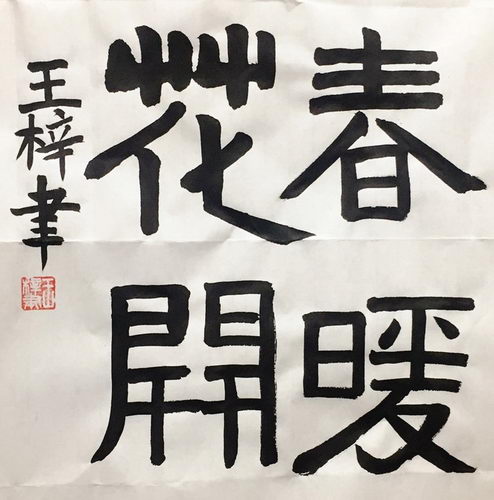 春暖
花開
王梓聿